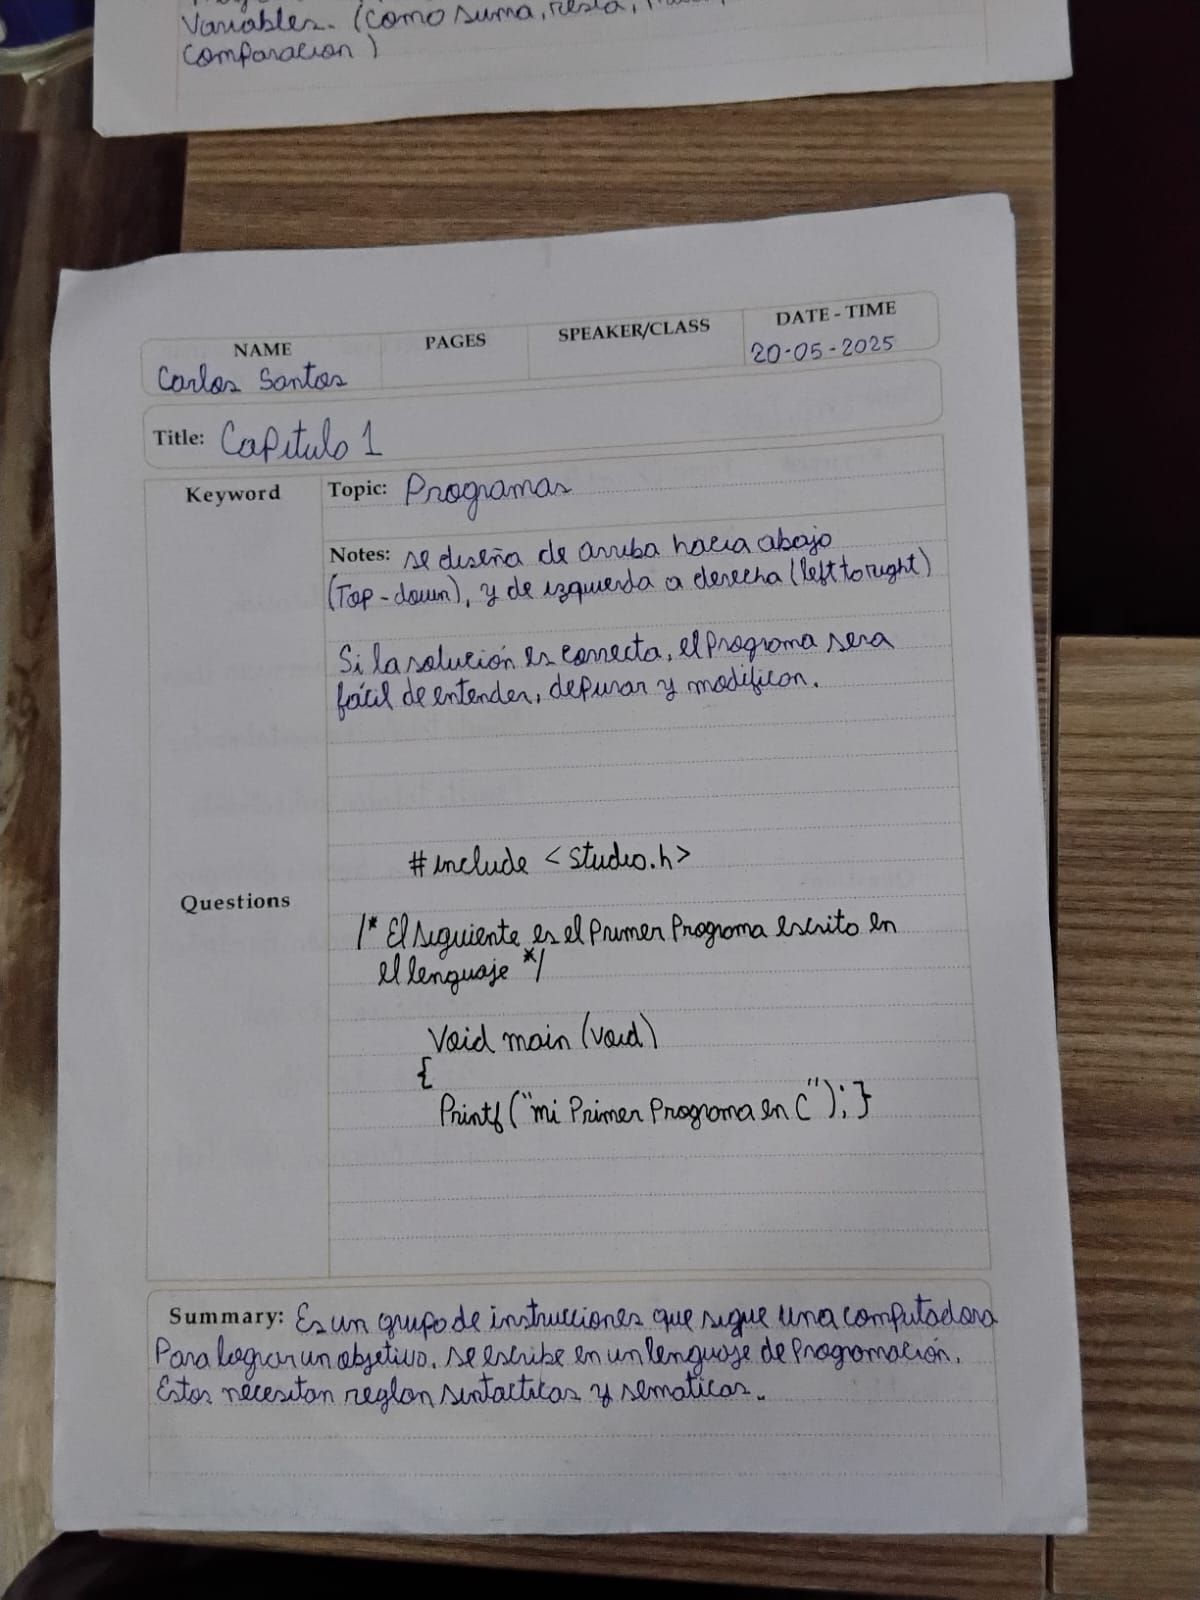 Variables. (Como suma, resta,
Comparacion)
NAME
PAGES
SPEAKER/CLASS
DATE - TIME
Carlos Santos
20-05-2025
Title: Capitulo 1
Keyword
Topic: Programas
Notes: se diseña de arriba hacia abajo
(Top-down), y de izquierda a derecha (left to right)
Si la solución es correcta, el Programa sera
fácil de entender, depurar y modificar.
#include <studio.h>
Questions
/* El siguiente es el Primer Programa escrito en
el lenguaje */
Void main (void)
{
Printf ("mi Primer Programa en C"); }
Summary: Es un grupo de instrucciones que sigue una computadora
Para lograr un objetivo, se escribe en un lenguaje de Programación.
Estos necesitan reglan sintacticas y sematicas.